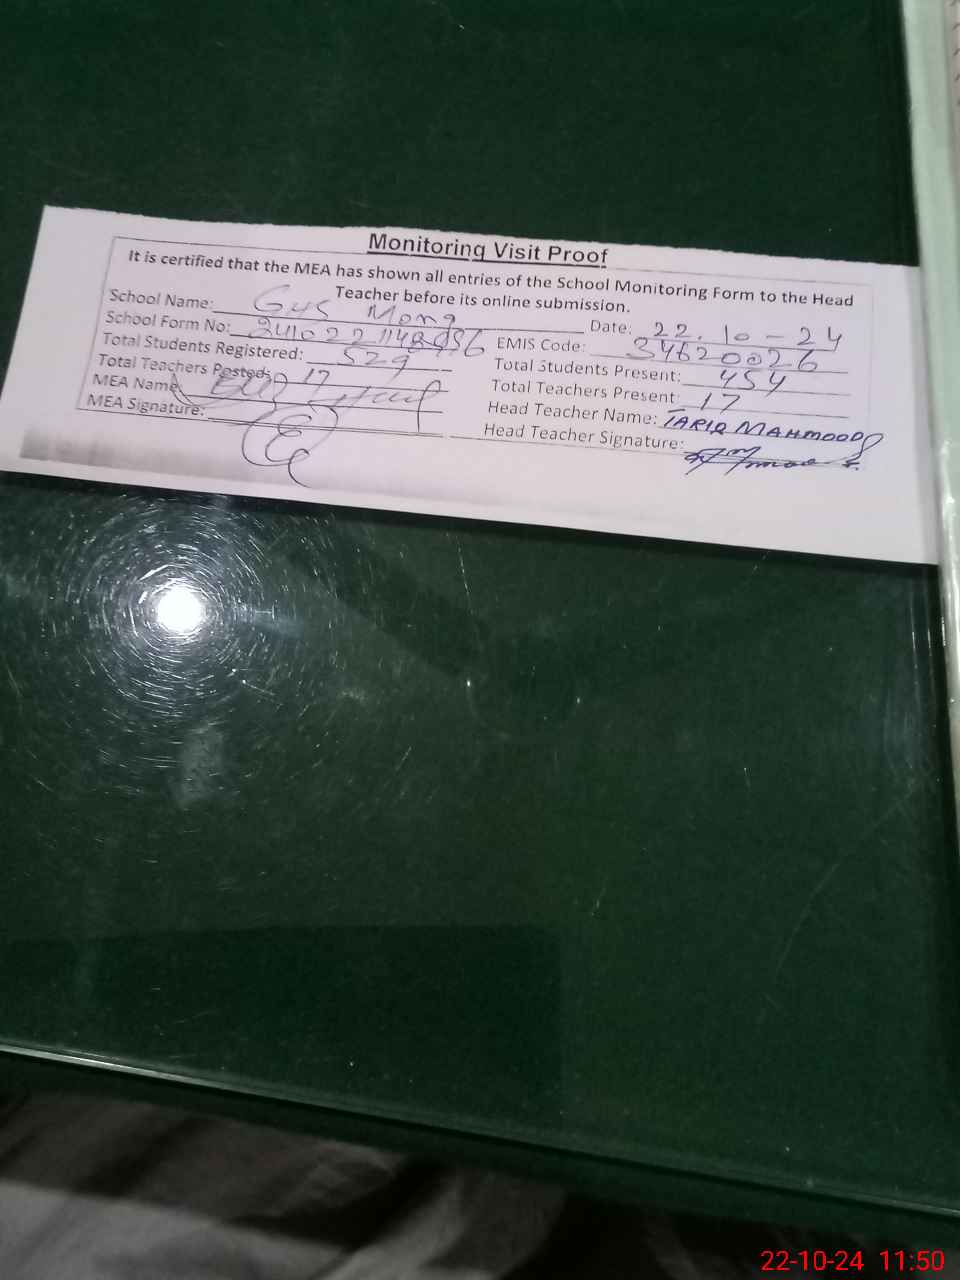 Monitoring Visit Proof
It is certified that the MEA has shown all entries of the School Monitoring Form to the Head
Teacher before its online submission.
School Name: GHS Mong Date: 22.10-24
School Form No: EMIS Code: 34620026
Total Students Registered: 529 Total Students Present: 454
Total Teachers Posted: 17 Total Teachers Present: 17
MEA Name: Head Teacher Name: TARIQ MAHMOOD
MEA Signature: Head Teacher Signature:
22-10-24 11:50